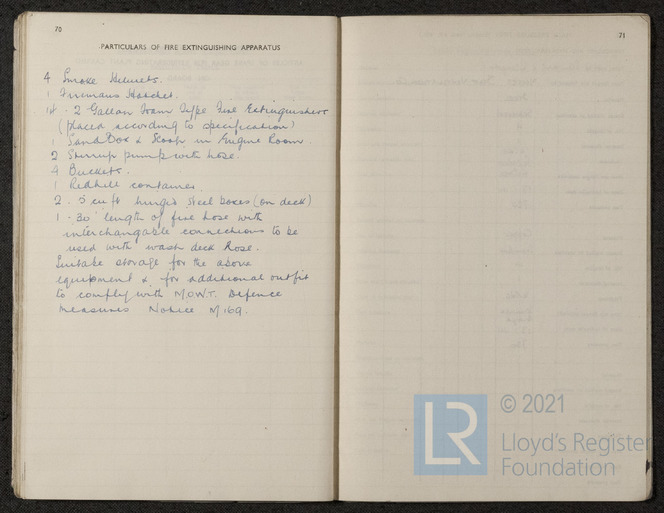 70
PARTICULARS OF FIRE EXTINGUISHING APPARATUS
4 Smoke Helmets.
1 Firemans Hatchet.
14 - 2 Gallon Foam Type Fire Extinguishers
(placed according to specification)
1 Sand Box & Scoop in Engine Room.
2 Stirrup pump with hose.
4 Buckets.
1 Redhill container.
2 - 5 cu ft hinged steel boxes (on deck)
1 - 30' length of fire hose with
interchangable connections to be
used with wash deck hose.
Suitable storage for the above
equipment & for additional outfit
to comply with M.O.W.T. Defence
Measures Notice M 169.
71
LR
© 2021
Lloyd's Register
Foundation